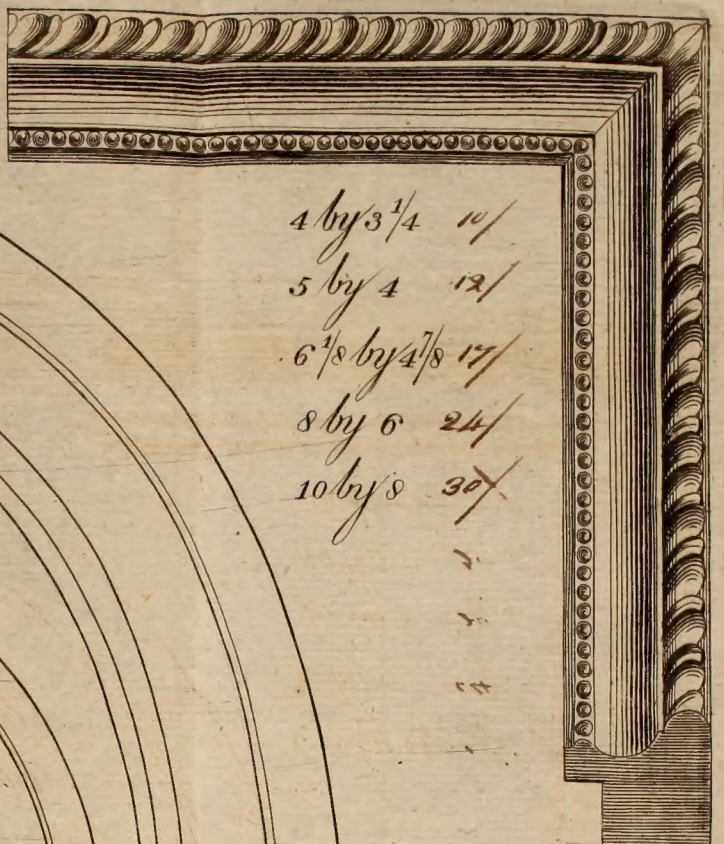 4 by 3 1/4 10/
5 by 4 12/
6 1/8 by 4 7/8 17/
8 by 6 24/
10 by 8 30/